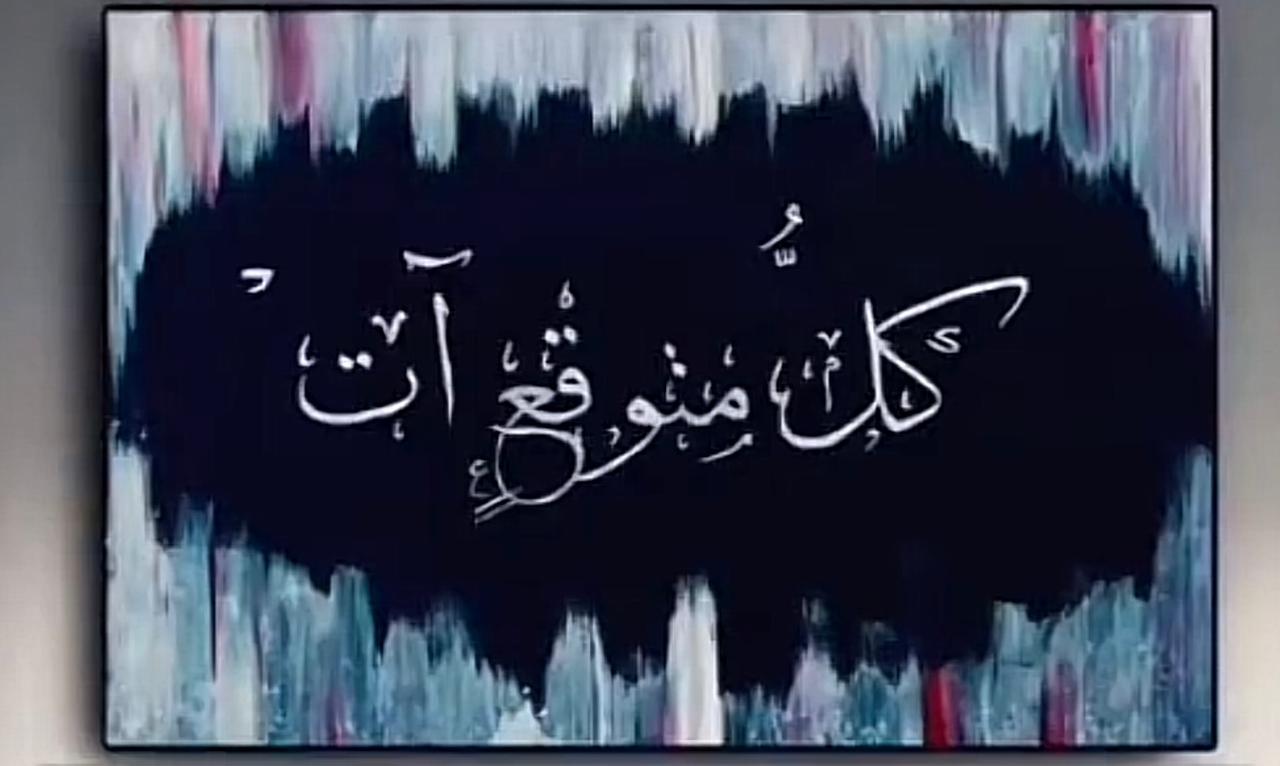 كُلُّ متوقعٍ آت